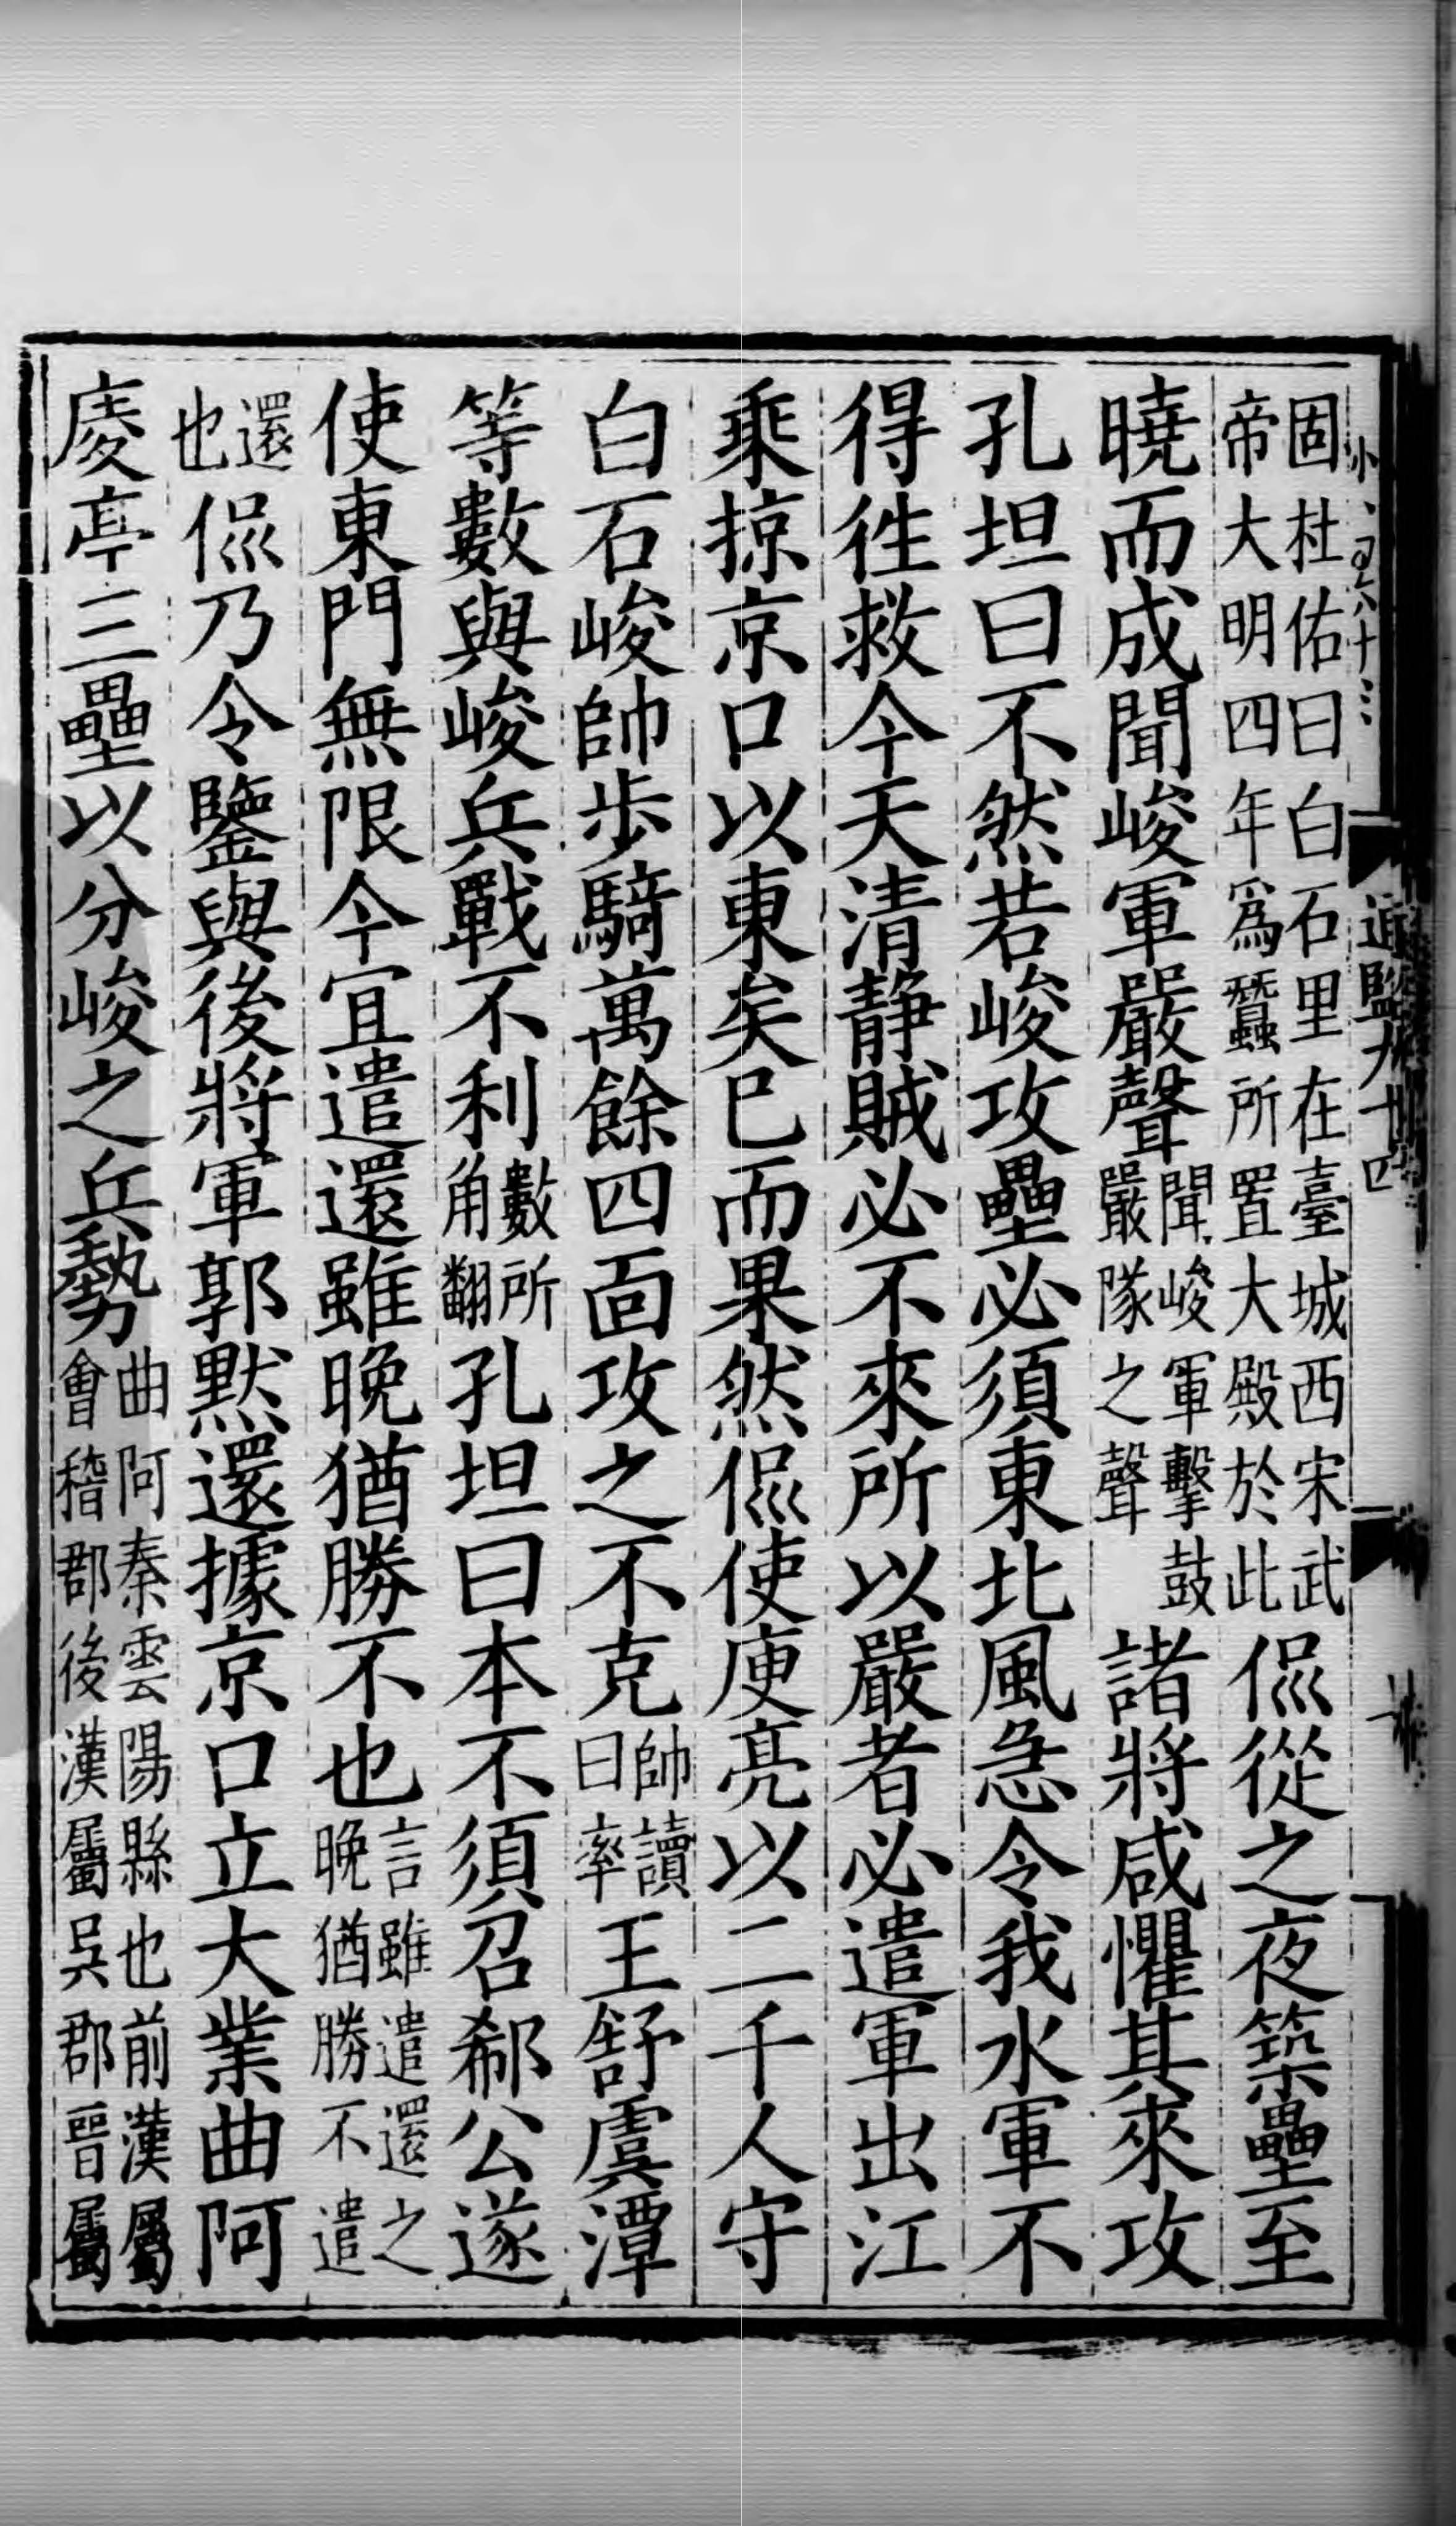 固杜佑曰白石里在臺城西宋武帝大明四年爲蠶所置大殿於此侃從之夜築壘至
曉而成聞峻軍嚴聲聞峻軍擊鼓嚴隊之聲諸將咸懼其來攻
孔坦曰不然若峻攻壘必須東北風急令我水軍不
得徃救今天清靜賊必不來所以嚴者必遣軍出江
乘掠京口以東矣已而果然侃使庾亮以二千人守
白石峻帥步騎萬餘四面攻之不克帥讀曰率王舒虞潭
等數與峻兵戰不利數所角翻孔坦曰本不須召郗公遂
使東門無限今宜遣還雖晚猶勝不也言雖遣還之晚猶勝不遣
還也侃乃令鑒與後將軍郭默還據京口立大業曲阿
庱亭三壘以分峻之兵勢曲阿秦雲陽縣也前漢屬會稽郡後漢屬吳郡晉屬